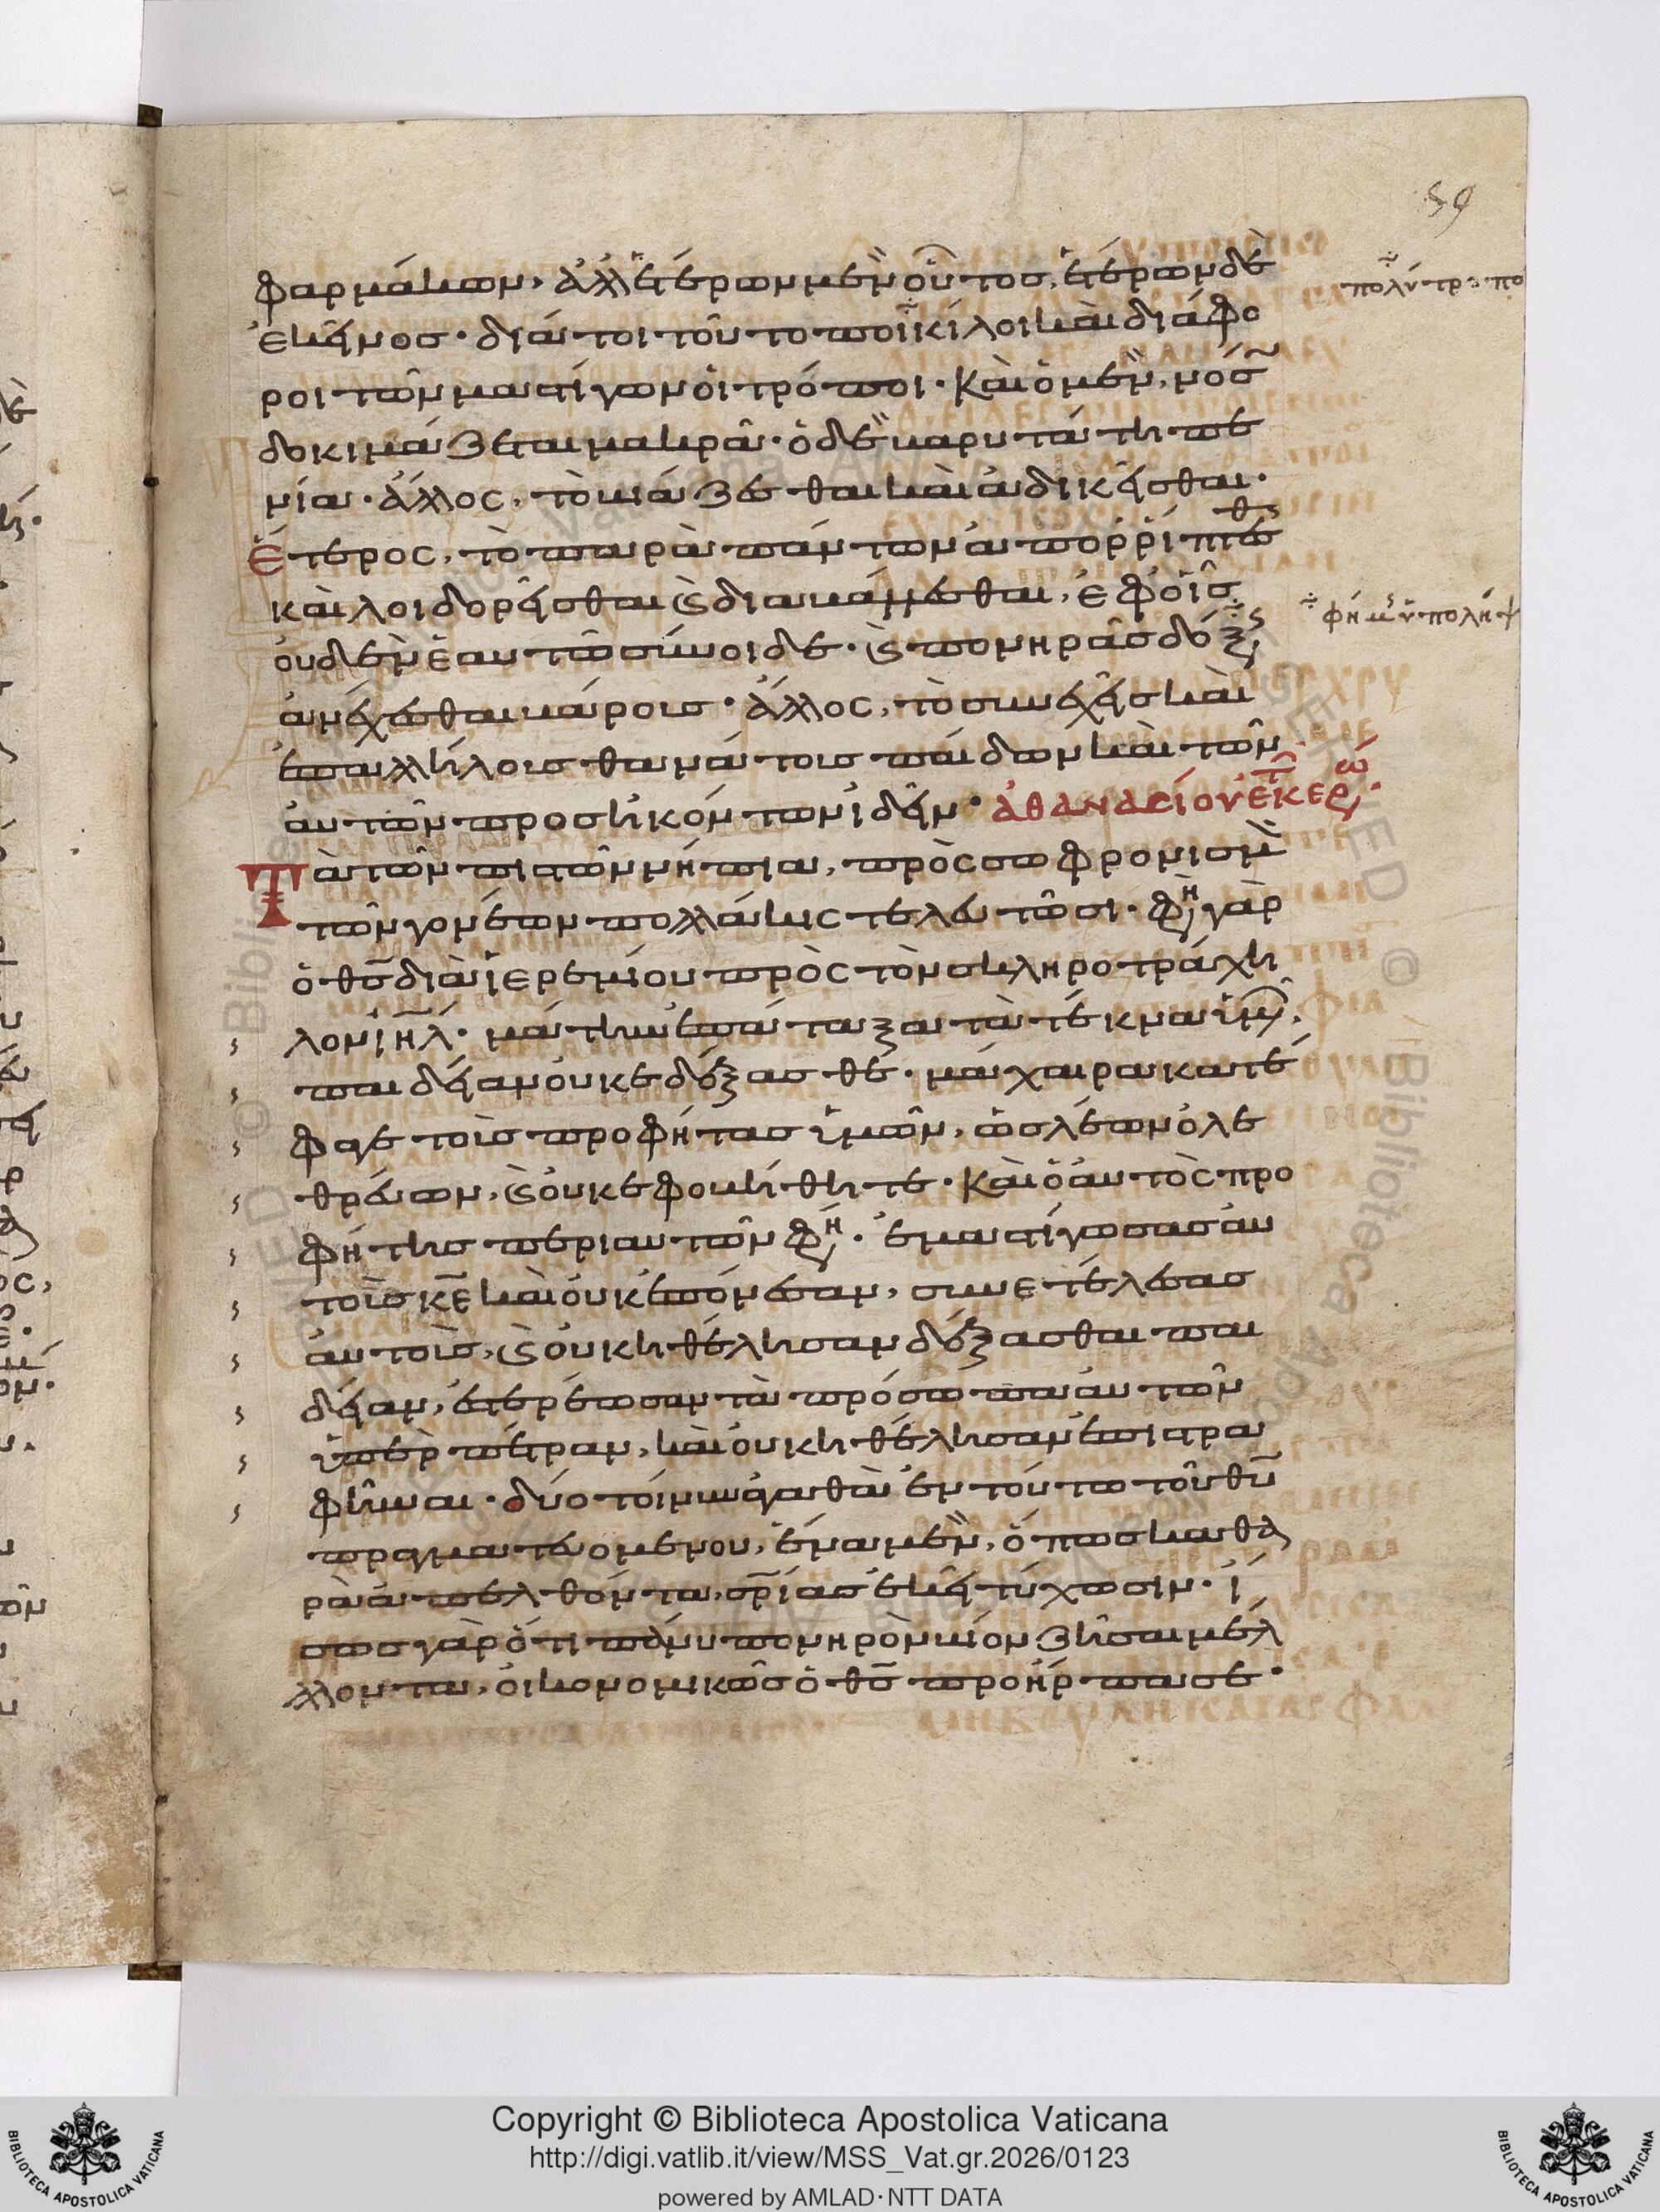 59
φαρμάκων, ἀλλ' ἑτέρων μὲν οὗτος, ἑτέρων δὲ
ἐκεῖνος· διά τοι τοῦτο ποικίλοι καὶ διάφο
ροι τῶν μαστίγων οἱ τρόποι· καὶ ὁ μὲν, νόσω
δοκιμάζεται μακρᾶ· ὁ δὲ καρυτάτη πε
νία· ἄλλος, τὸ βιάζεσθαι καὶ ἀδικεῖσθαι·
ἕτερος, τὸ παρὰ πάντων ἀπορρίπτεσθ
καὶ λοιδορεῖσθαι ϗ διακάμπεσθαι, ἐφ' οἷς
οὐδὲν ἑαυτῶ σύνοιδε· ϗ πονηρᾶς δόξης
ἀνέχεσθαι βάροις· ἄλλος, τὸ συνεχεῖς καὶ
ἐπαλλήλοις θανάτοις παίδων καὶ τῶν
αὐτῶν προσηκόντων ἰδεῖν· ἀθανασίου ἐκ τ κερ
Τὰ τῶν πιστῶν νήπια, πρὸς σωφρονισμὸν
τῶν γονέων πολλάκις τελευτῶσι· φη γὰρ
ὁ θς διὰ ἱερεμίου πρὸς τὸν σκληροτράχη
λον ιηλ· μάτην ἐπάταξα τὰ τέκνα ὑμῶν,
παιδείαν οὐκ ἐδέξασθε· μάχαιρα κατέ
φαγε τοὺς προφήτας ὑμῶν, ὡς λέων ὀλε
θρεύων, ϗ οὐκ ἐφοβήθητε· καὶ ὁ αὐτὸς προ
φήτης περὶ αὐτῶν φη· ἐμαστίγωσας αὐ
τοὺς κε καὶ οὐκ ἐπόνεσαν, συνετέλεσας
αὐτοὺς, ϗ οὐκ ἠθέλησαν δέξασθαι παι
δείαν, ἐστερέωσαν τὰ πρόσωπα αὐτῶν
ὑπὲρ πέτραν, καὶ οὐκ ἠθέλησαν ἐπιστρα
φῆναι· δύο τοίνυν ἀγαθὰ ἐν τούτω τοῦ θυ
πραγματευομένου, ἓν μὲν, ὅπως καθα
ρὰ ἀπελθόντα, σρίας ἐκεῖ τύχωσιν· ἴ
σως γὰρ ὅτι πάνυ πονηρὸν βίον ζῆσαι μέλ
λοντα, οἰκονομικῶς ὁ θς προήρπασε·
πολύτροπο
Copyright © Biblioteca Apostolica Vaticana
http://digi.vatlib.it/view/MSS_Vat.gr.2026/0123
powered by AMLAD·NTT DATA
BIBLIOTECA APOSTOLICA VATICANA
BIBLIOTECA APOSTOLICA VATICANA